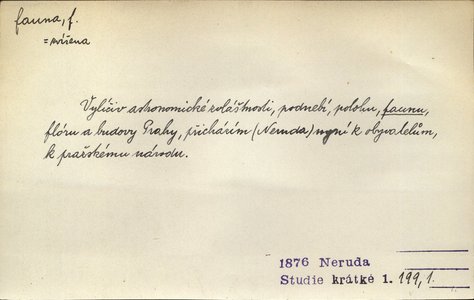 fauna, f.
= zvířena
Vylíčiv astronomické zvláštnosti, podnebí, polohu, faunu,
flóru a budovy Prahy, přicházím (Neruda) nyní k obyvatelům,
k pražskému národu.
1876 Neruda
Studie krátké 1. 199,1.